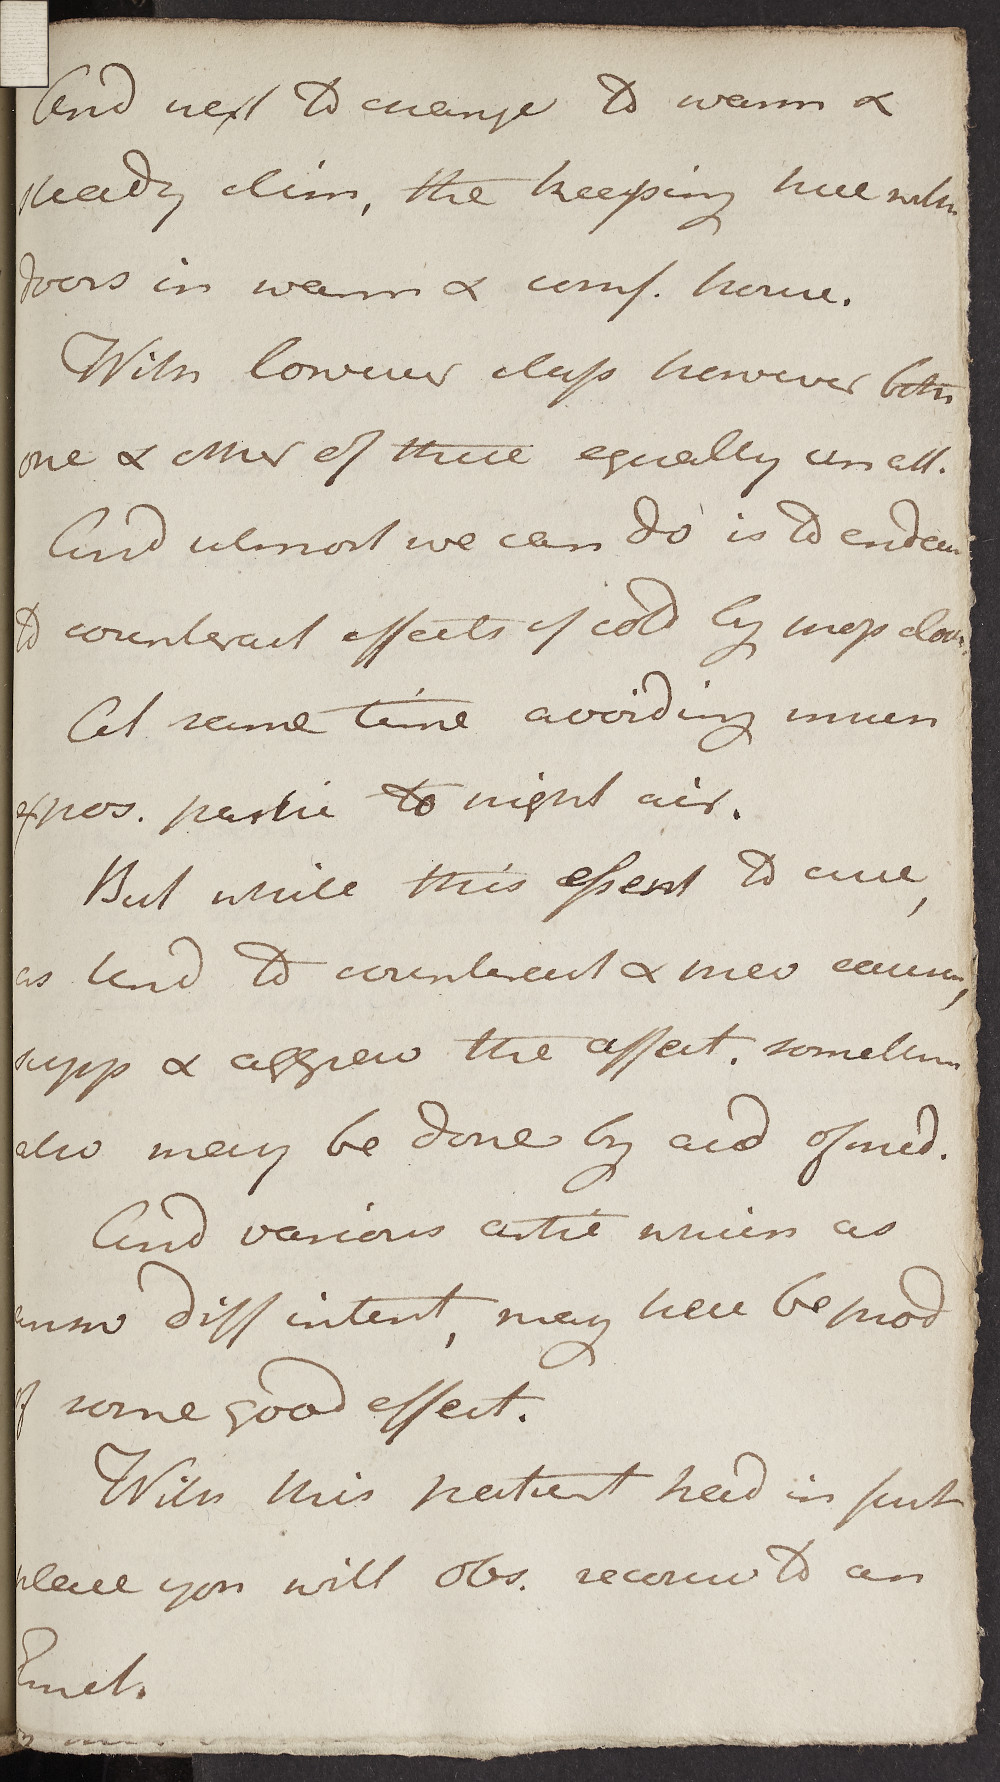 And next to change to warm &
steady clim, the keeping here within
doors in warm & comf. house.
With lower class however both
one & other of these equally un att.
And utmost we can do is to endeav
to counteract effects of cold by clo
At same time avoiding much
expos. partic to night air.
But while this essent to cure,
as tend to counteract & causes,
supp & aggrav the affect. sometim
also may be done by aid of med.
And various artic which as
answ diff intent, may here be prod
of some good effect.
With this patient had in first
place you will obs. recourse to an
Emet.